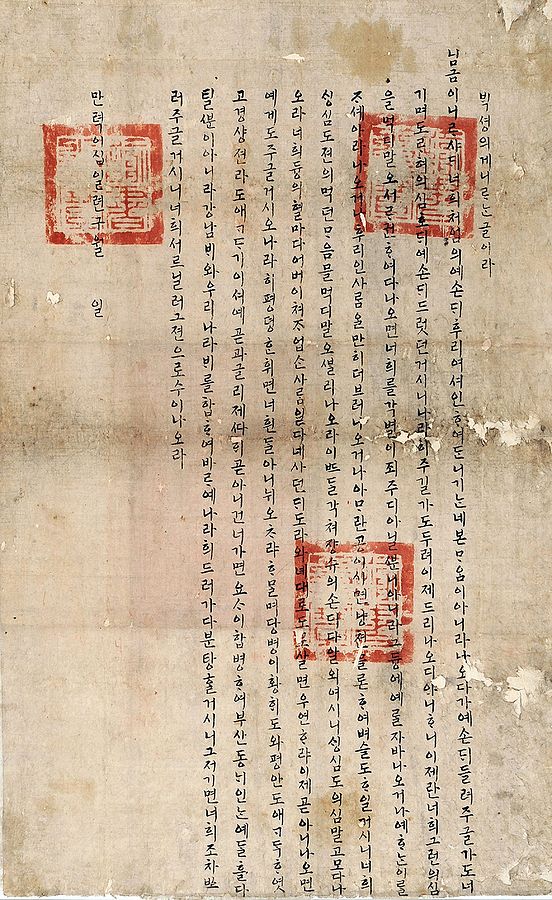 빅셩의게니ᄅᆞᄂᆞᆫ글이라
님금이니ᄅᆞ샤ᄃᆡ너희처엄의예손ᄃᆡ후리여셔인ᄒᆞ여ᄃᆞᆫ니기ᄂᆞᆫ네본ᄆᆞᄋᆞᆷ이아니라나오다가예손ᄃᆡ들려주글가도너
기며도ᄅᆞ혀의심ᄒᆞ되예손ᄃᆡ드럿던거시니나라히주길가도두려이제드리나오디아니ᄒᆞ니이제란너희그런의심
을먹디말오서ᄅᆞ권ᄒᆞ여다나오면너희를각별이죄주디아닐ᄲᅮᆫ니아니라그듕에예ᄅᆞᆯ자바나오거나예ᄒᆞᄂᆞᆫ이ᄅᆞᆯ
ᄌᆞ셰아라나오거나후리인사ᄅᆞᆷ을만히더브러나오거나아ᄆᆞ란공이시면냥쳔믈론ᄒᆞ여벼슬도ᄒᆞ일거시니너희
ᄉᆡᆼ심도젼의먹던ᄆᆞᄋᆞᆷ믈먹디말오ᄲᆞᆯ리나오라이ᄠᅳᄃᆞᆯ각쳐쟝슈의손ᄃᆡ다알외여시니ᄉᆡᆼ심도의심말고모다나
오라너희듕의혈마다어버이쳐ᄌᆞ업ᄉᆞᆫ사ᄅᆞᆷ일다녜사던ᄃᆡ도라와녜대로도로살면우연ᄒᆞ랴이제곧아니나오면
예게도주글거시오나라히평뎡ᄒᆞᆫ휘면너흰ᄃᆞᆯ아니뉘오ᄎᆞ랴ᄒᆞᄆᆞᆯ며당병이황ᄒᆡ도와평안도애ᄀᆞᄃᆞᆨᄒᆞ엿
고경샹젼라도애ᄀᆞᄃᆞ기이셔예곧과글리제ᄯᅡ희곧아니건너가면요ᄉᆞ이합병ᄒᆞ여부산동ᄂᆡ인ᄂᆞᆫ예ᄃᆞᆯ홀다
틸ᄲᅮᆫ이아니라강남ᄇᆡ와우리나라ᄇᆡ를합ᄒᆞ여바ᄅᆞ예나라희드러가다분탕ᄒᆞᆯ거시니그저기면너희조차ᄡᅳ
러주글거시니너희서ᄅᆞ닐러그젼으로수이나오라
만력이십일년구월 일